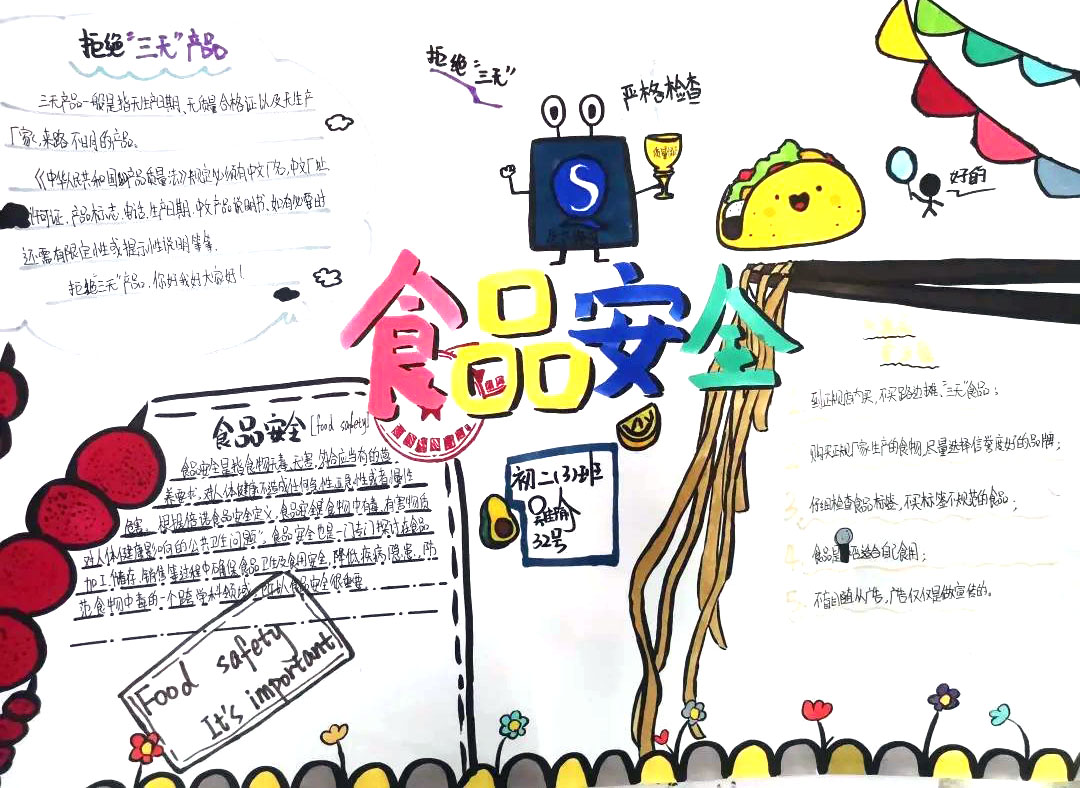 拒绝"三无"产品
三无产品一般是指无生产日期、无质量合格证以及无生产
厂家,来路不明的产品。
《中华人民共和国产品质量法》规定必须有中文厂名,中文厂址
许可证,产品标志,电话,生产日期,中文产品说明书,如有必要时
还需有限定性或提示性说明等等,
拒绝"三无"产品,你好我好大家好!
拒绝"三无"
严格检查
S
好的
食品安全
食品安全[food safety]
食品安全是指食物无毒、无害,符合应当有的营
养要求,对人体健康不造成任何急性、亚急性或者慢性
危害。根据倍诺食品安全定义,食品安全是"食物中有毒、有害物质
对人体健康影响的公共卫生问题"。食品安全也是一门专门探讨在食品
加工、储存、销售等过程中确保食品卫生及食用安全,降低疾病隐患,防
范食物中毒的一个跨学科领域,所以食品安全很重要。
Food safety
It's important
初二(3)班
32号
到正规店内买,不买路边摊、"三无"食品;
购买正规厂家生产的食物,尽量选择信誉度好的品牌;
仔细检查食品标签,不买标签不规范的食品;
食品是否适合自己食用;
不盲目随从广告,广告仅仅是做宣传的。